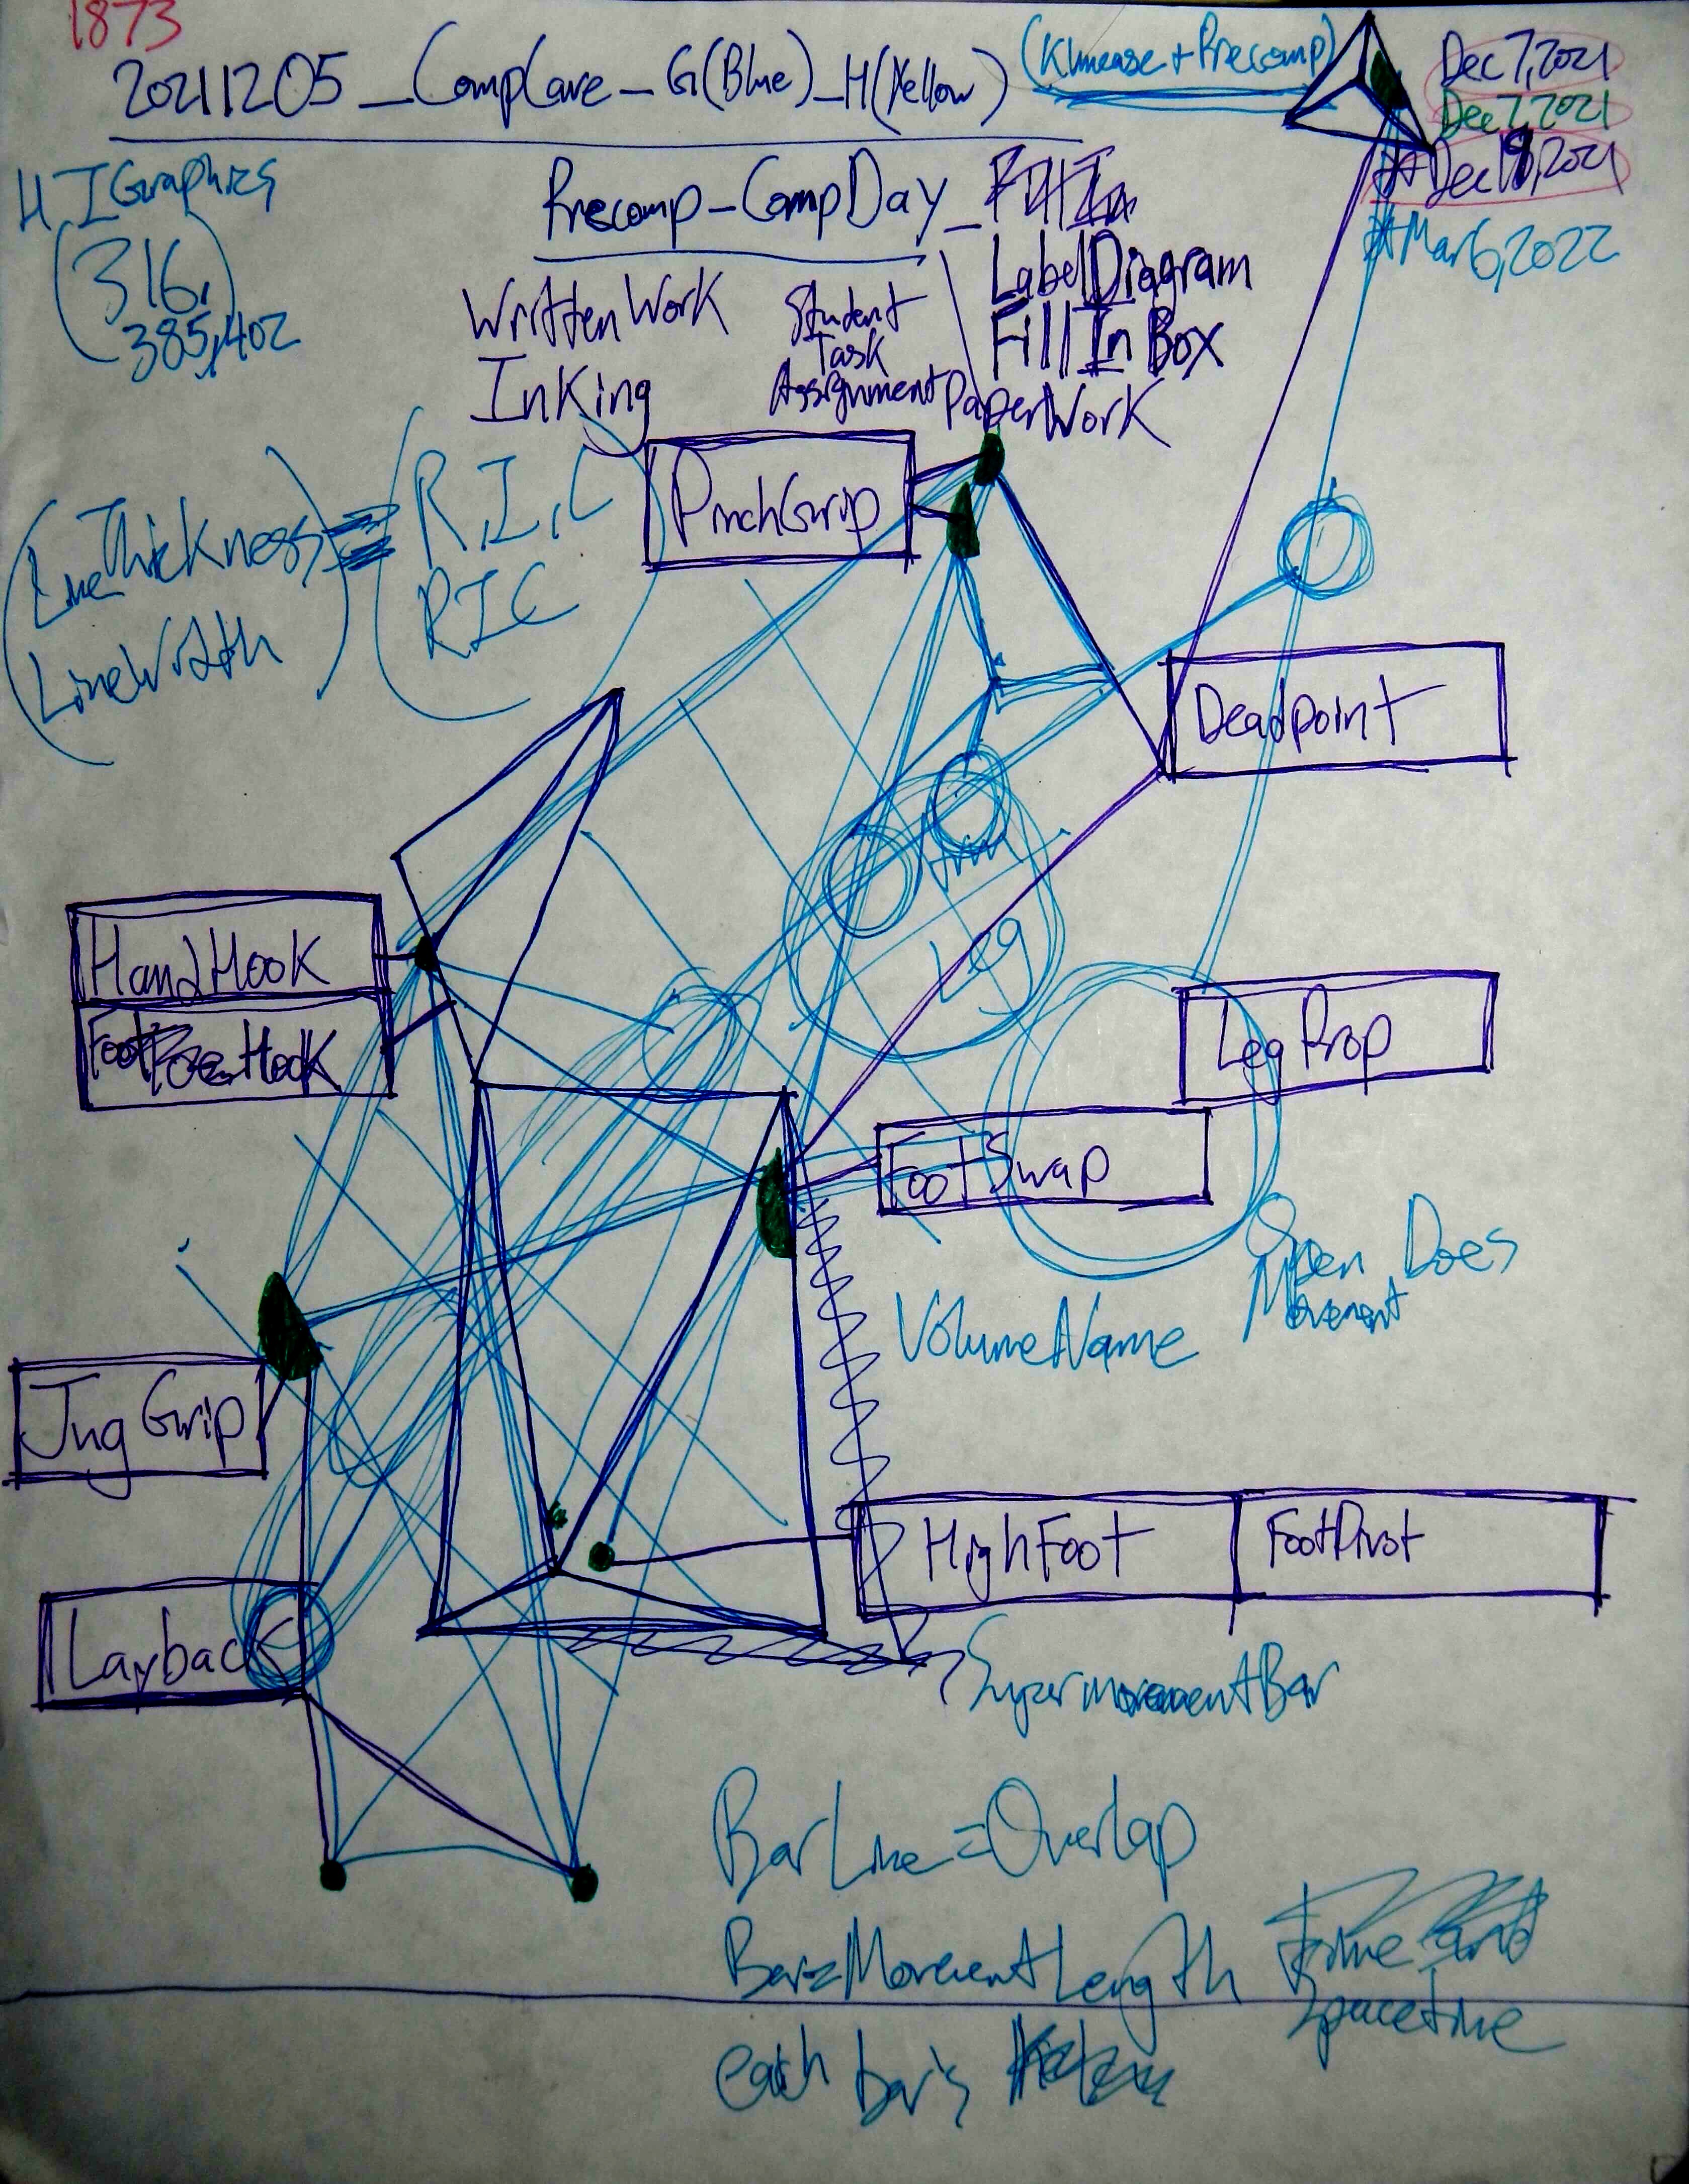 1873
20211205_CompCave_G(Blue)_H(Yellow)
(Kinease + Precomp)
Dec 7, 2021
Dec 7, 2021
Mar 6, 2022
H, I Graphics
(316,
385, 402
Precomp_CompDay_
Label Diagram
Fill In Box
PaperWork
Written Work
Inking
Student
Task
Assignment
(Line Thickness
Line Width) ≡ (R, I, C
RIC
PinchGrip
Deadpoint
Arm
Leg
HandHook
Foot Hook
LegProp
FootSwap
Open Does
Movement
VolumeName
Jug Grip
HighFoot
FootPivot
Layback
SupermovementBar
BarLine=Overlap
Bar=MovementLength
Spacetime
each bar is